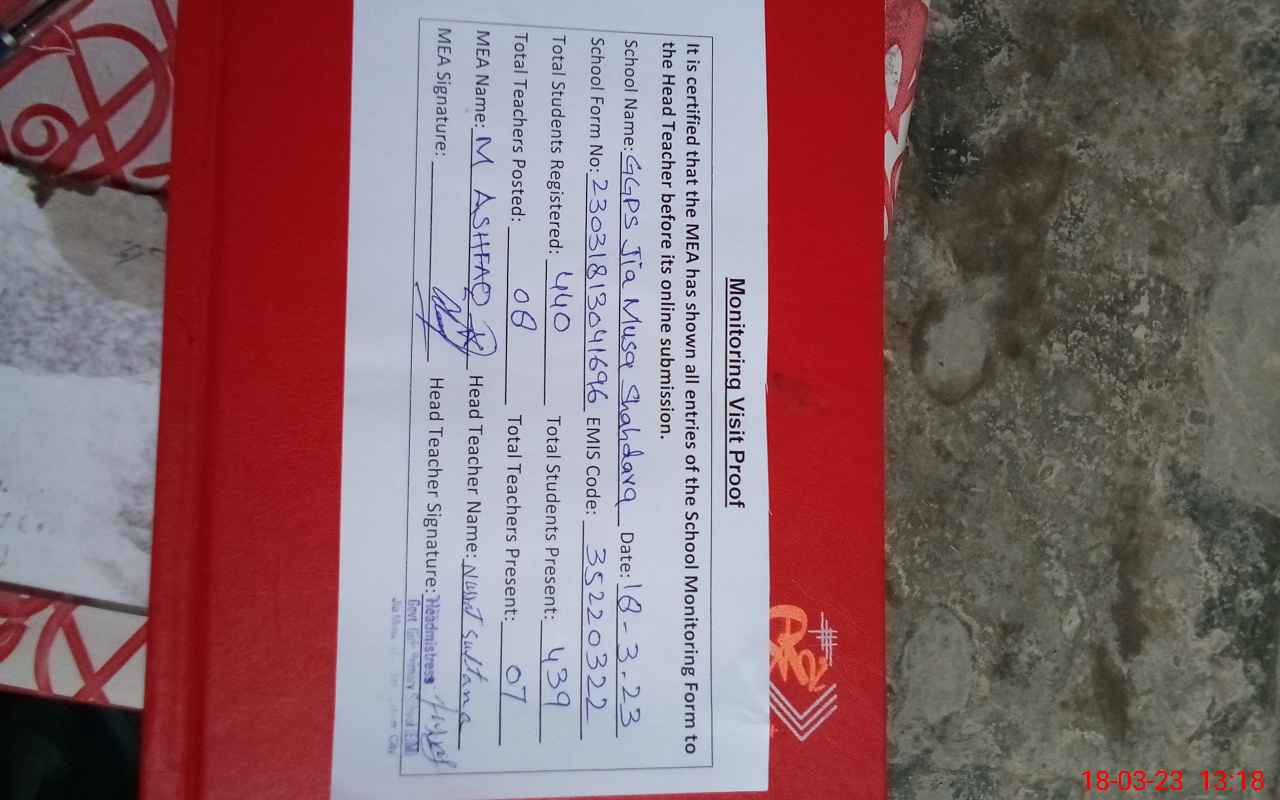 Monitoring Visit Proof
It is certified that the MEA has shown all entries of the School Monitoring Form to
the Head Teacher before its online submission.
School Name: GGPS Jia Musa Shahdara Date: 18-3.23
School Form No: 23031813041696 EMIS Code: 35220322
Total Students Registered: 440 Total Students Present: 439
Total Teachers Posted: 08 Total Teachers Present: 07
MEA Name: M ASHFAQ Head Teacher Name: Nusrat Sultana
MEA Signature: Head Teacher Signature:
Headmistress
Govt Girls Primary School EM
Jia Musa
City
18-03-23 13:18